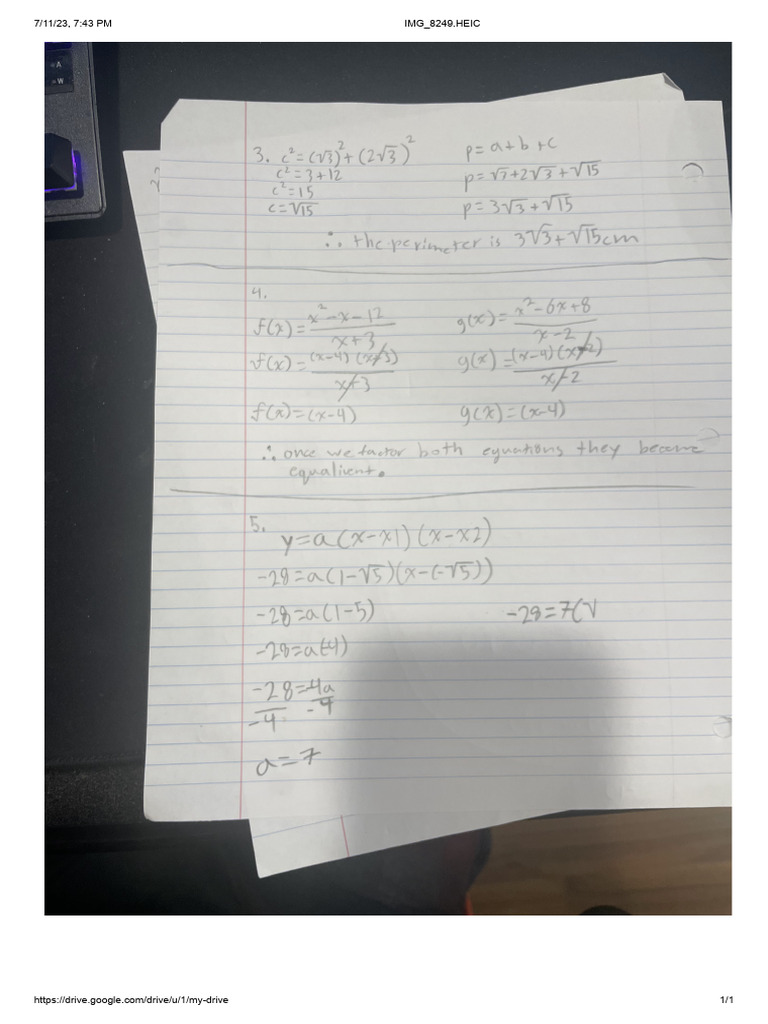 7/11/23, 7:43 PM IMG_8249.HEIC
A
W
3. c²=(√3)²+(2√3)²
c²=3+12
c²=15
c=√15
p=a+b+c
p=√3+2√3+√15
p=3√3+√15
∴ the perimeter is 3√3+√15cm
4.
f(x)=x²-x-12/x+3
f(x)=(x-4)(x+3)/x+3
f(x)=(x-4)
g(x)=x²-6x+8/x-2
g(x)=(x-4)(x-2)/x-2
g(x)=(x-4)
∴ once we factor both equations they become
equalivent.
5.
y=a(x-x1)(x-x2)
-28=a(1-√5)(x-(-√5))
-28=a(1-5)
-28=a(-4)
-28=-4a
-4 -4
a=7
-28=7(√
https://drive.google.com/drive/u/1/my-drive 1/1